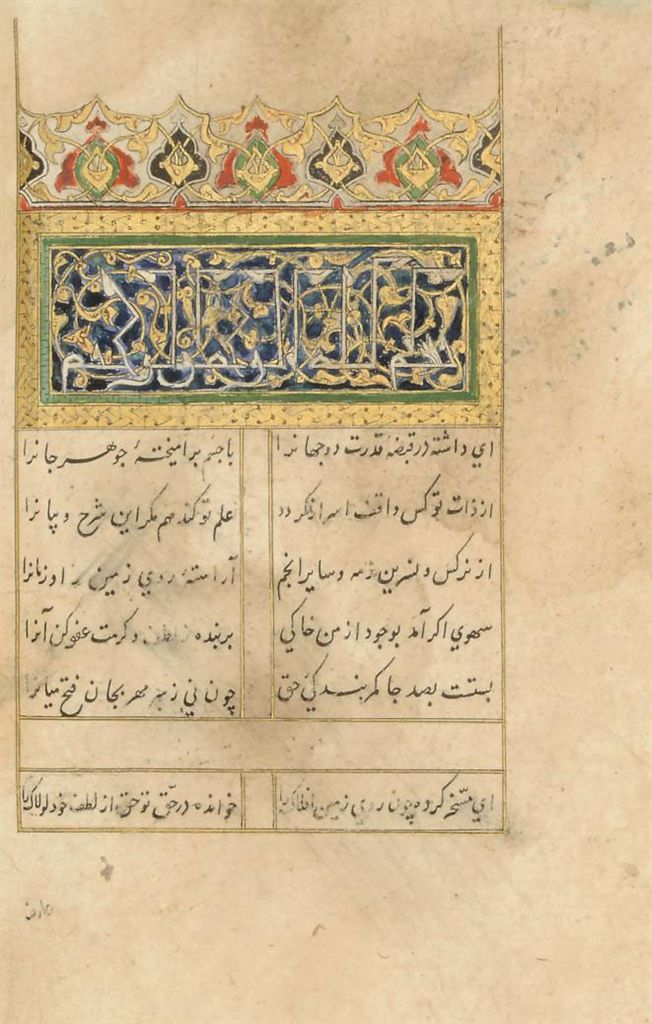 بسم الله الرحمن الرحيم
اي داشته در قبضهٔ قدرت دو جهانرا با جسم برآميختهٔ جوهر جانرا
از ذات تو كس واقف اسرار نكردد علم تو كند هم مكر اين شرح و بيانرا
از نركس و نسرين و سايرانجم آراستهٔ روي زمين را و زمانرا
سهوي اكر آمد بوجود از من خاكي بر بنده وكرمت عفو كن آنرا
بستست بصد جا كمر بندكي حق چون ني ز سر مهر بجان فتح ميانرا
اي مسخّر كرده چون روي زمين افلاك را خوانده در حقّ تو حق از لطف خود لولاك را
عارض